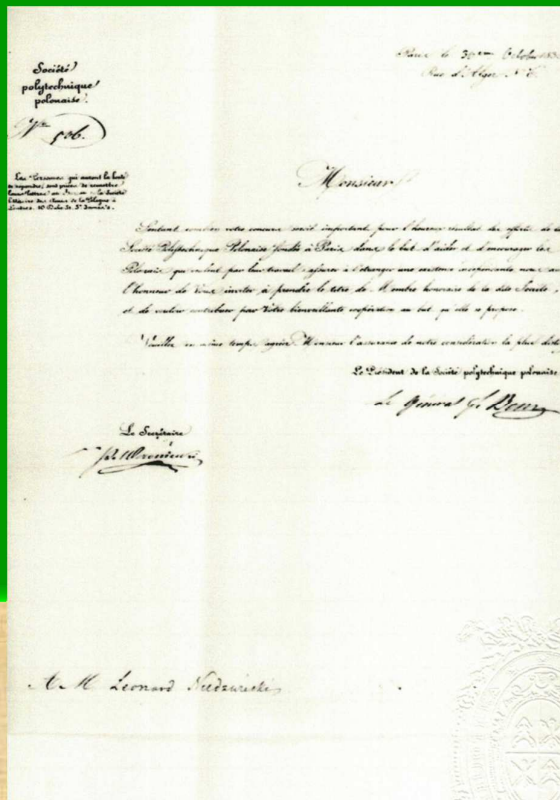 Société
polytechnique
polonaise.
Nro 506.
Les Personnes qui auront la bonté
de répondre, sont priées de remettre
leurs lettres au de la Société
Littéraire des Amis de la Pologne à
Londres. 10 Duke St. St. James's.
Paris le 30 Octobre
Rue d'Alger. No
Monsieur
Sentant combien votre concours serait important pour l'heureux résultat des efforts de
Société Polytechnique Polonaise fondée à Paris dans le but d'aider et d'encourager les
Polonais qui veulent par leur travail s'assurer à l'étranger une certaine indépendance, nous
l'honneur de Vous inviter à prendre le titre de Membre honoraire de la dite Société,
et de vouloir contribuer par Votre bienveillante coopération au but qu'elle se propose.
Veuillez en même temps agréer Monsieur l'assurance de notre considération la plus
Le Président de la Société polytechnique polonaise
Le Général Bem
Le Secrétaire
A M Leonard Niedzwiecki